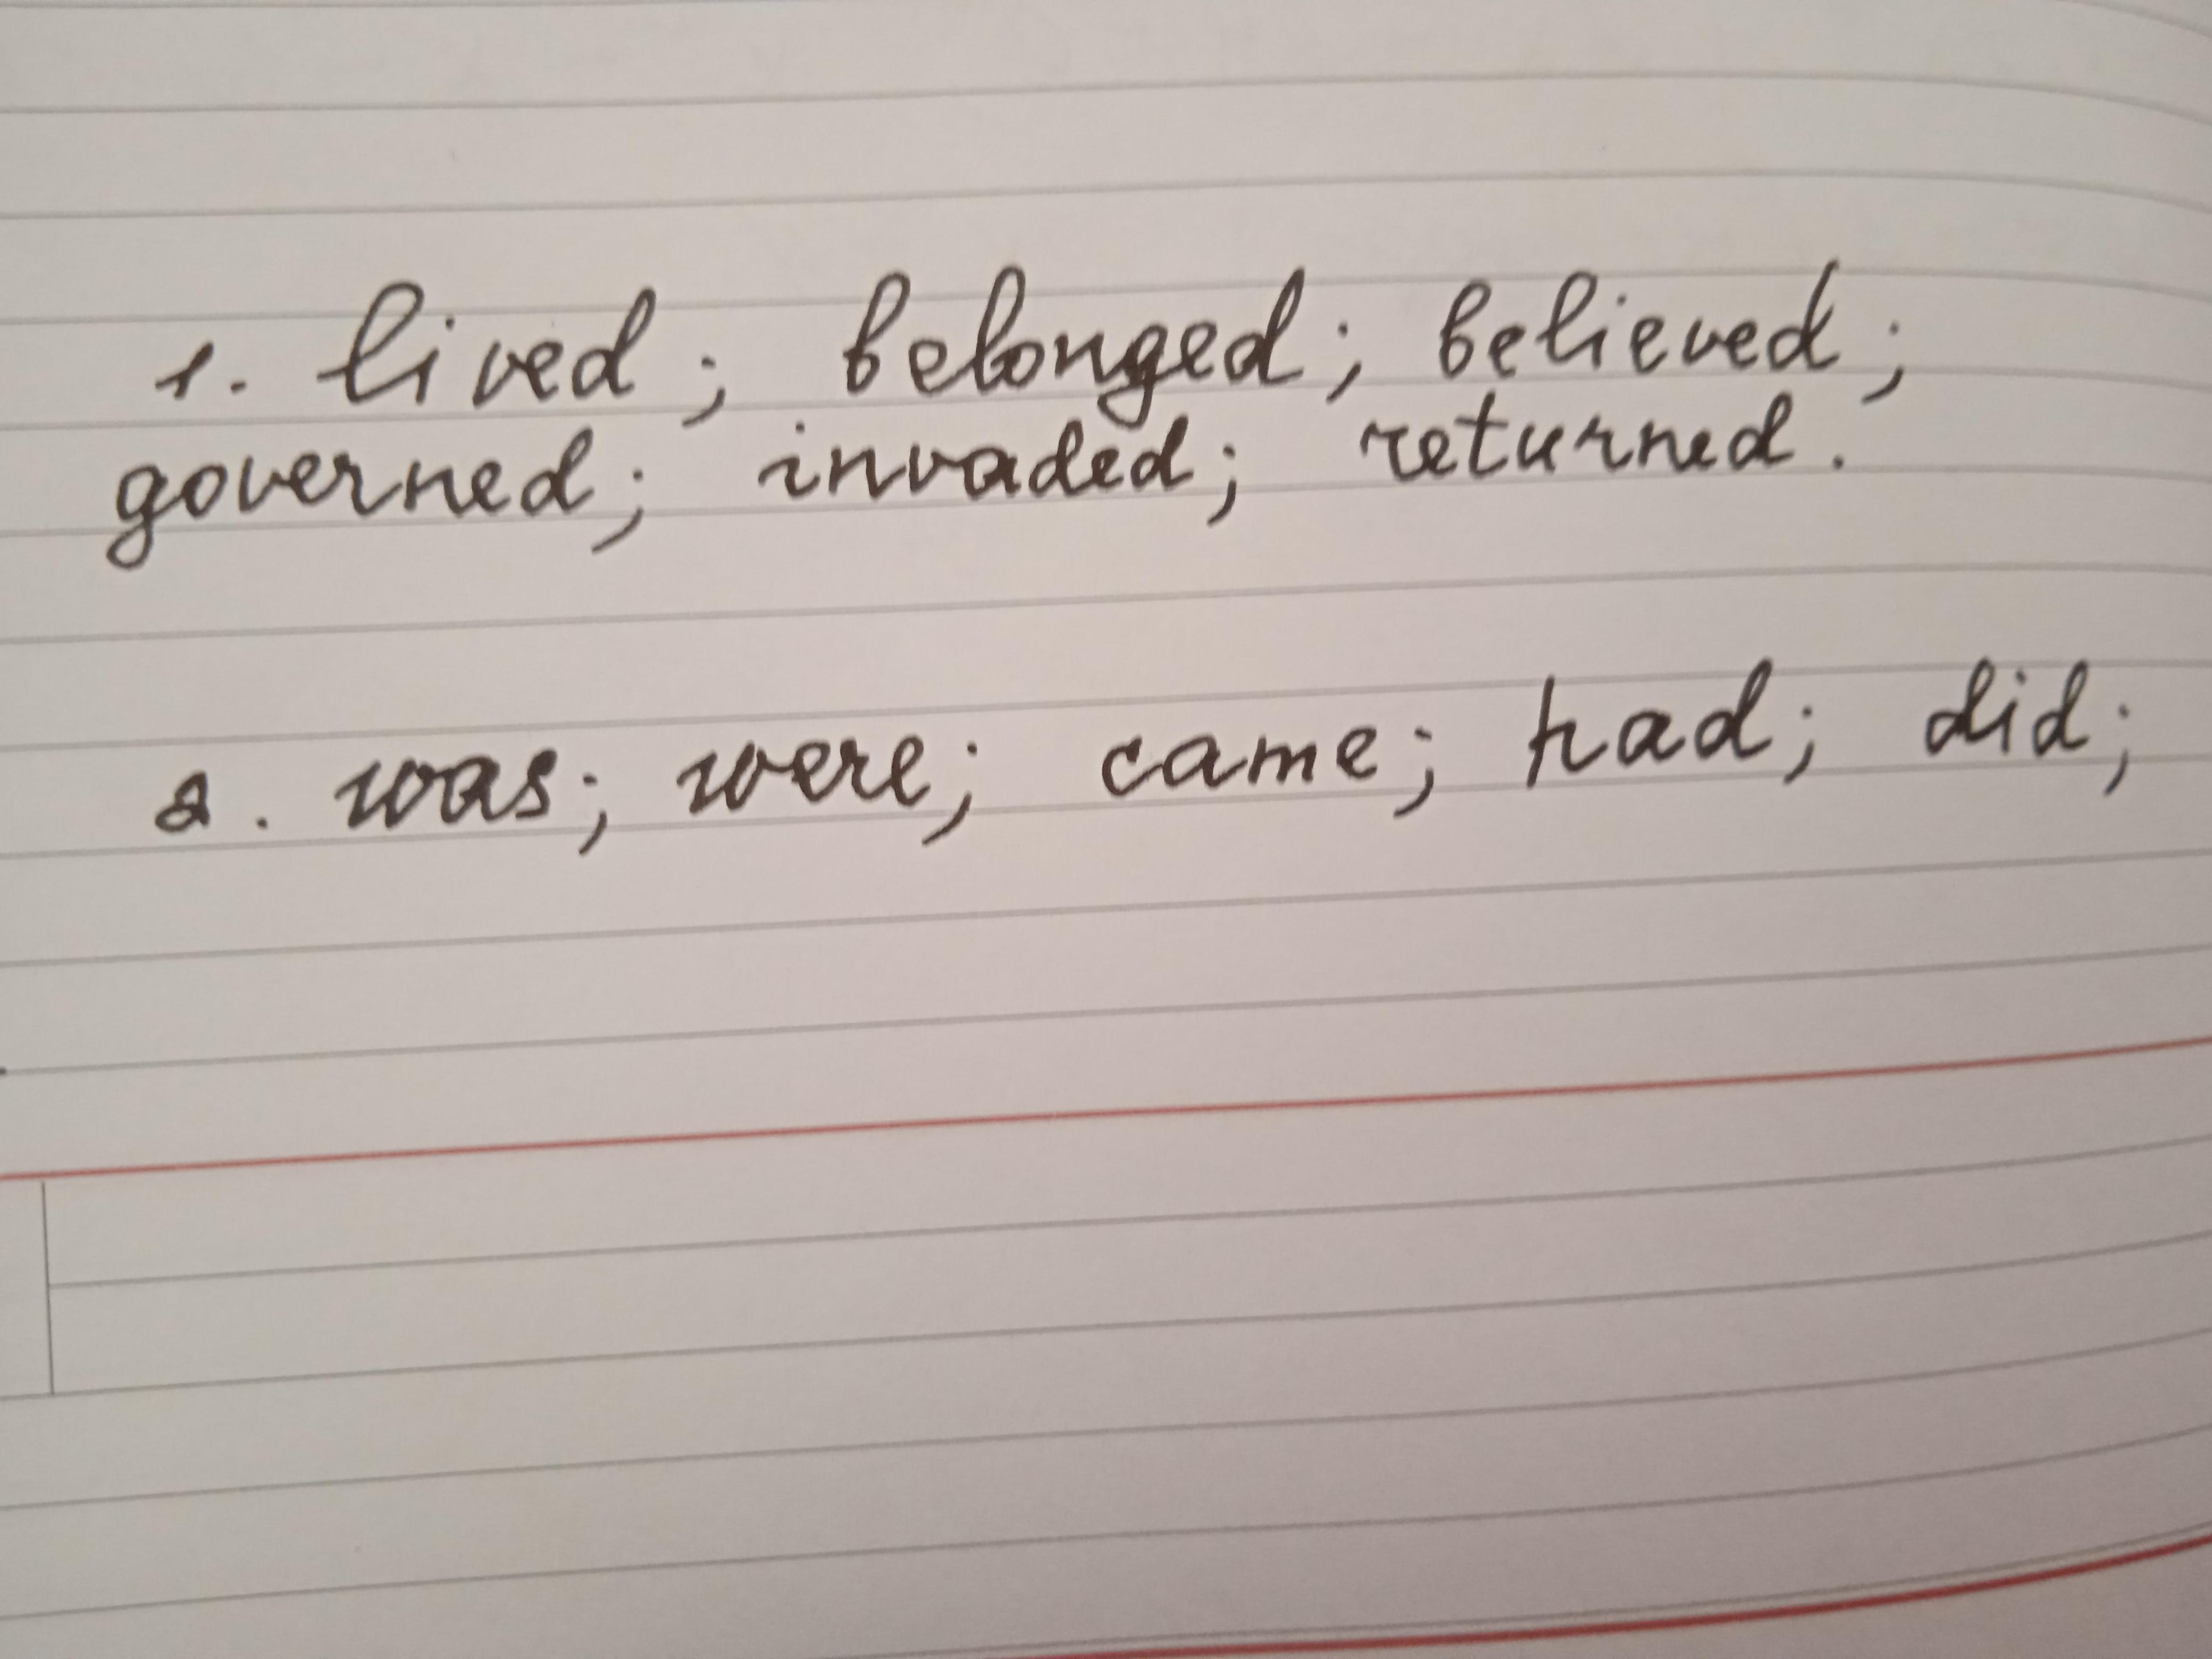 1. lived; belonged; believed;
governed; invaded; returned.
2. was; were; came; had; did;